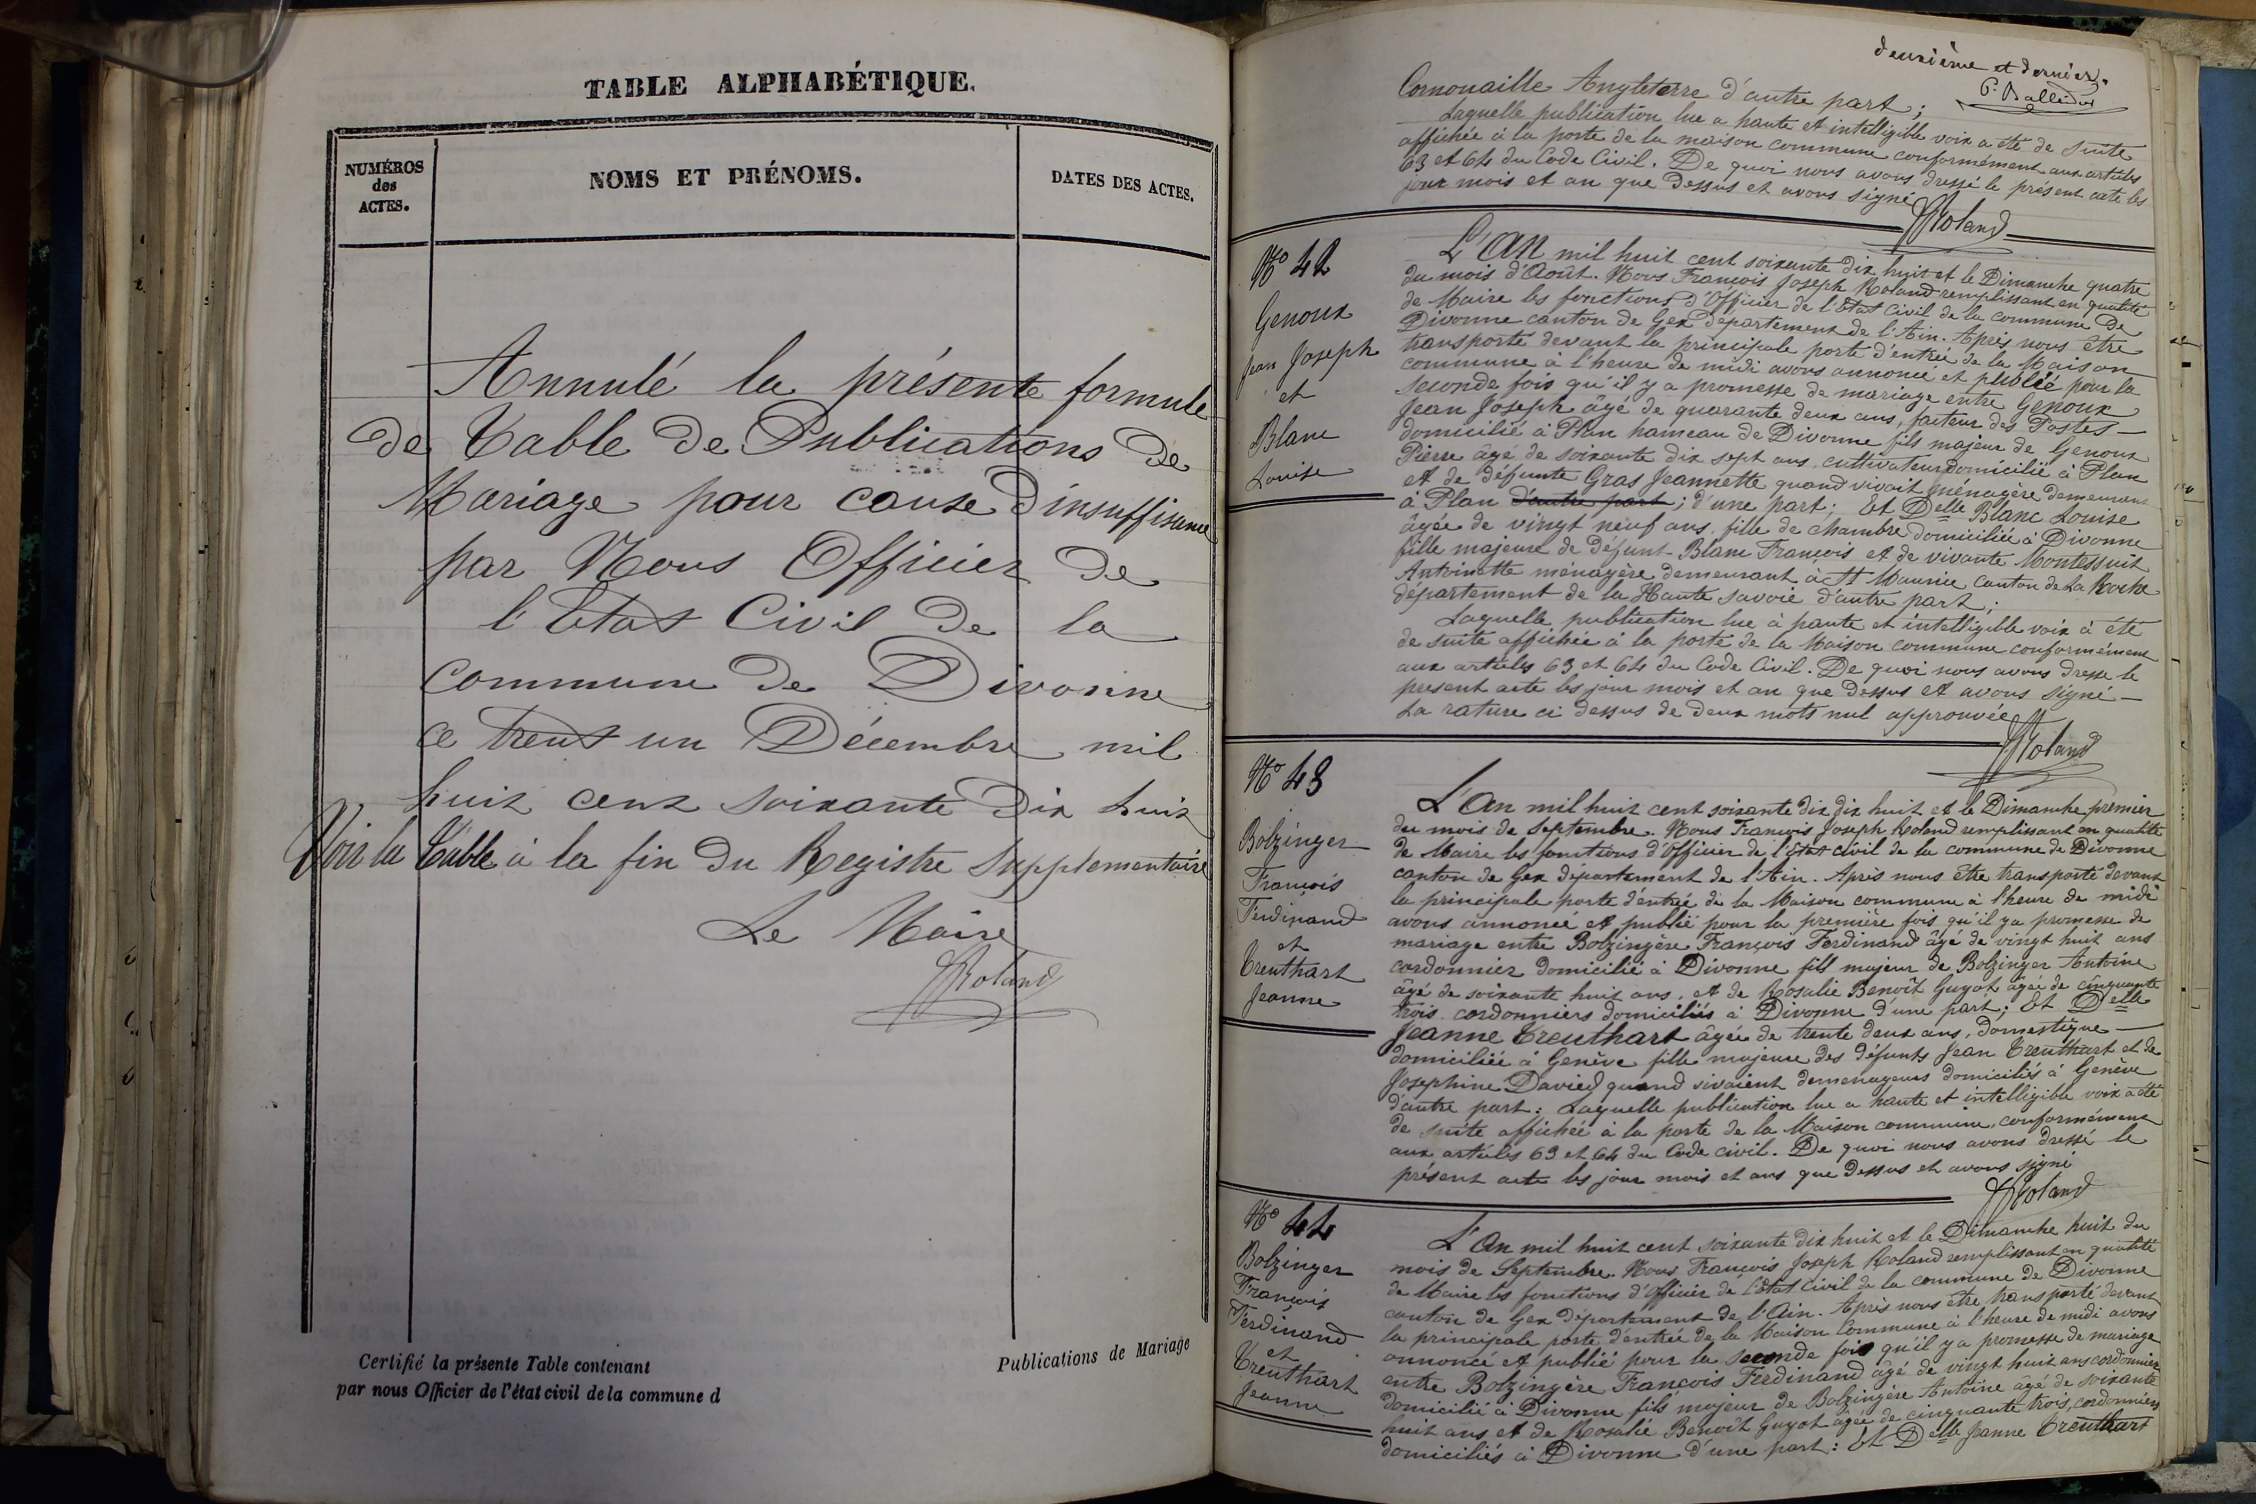 TABLE ALPHABÉTIQUE.
NUMÉROS
des
ACTES.
NOMS ET PRÉNOMS.
DATES DES ACTES.
Annulé la présente formule
de Table de Publications de
Mariage pour cause d'insuffisance
par Nous Officier de
l'Etat Civil de la
commune de Divonne
ce trent un Décembre mil
huit cent soixante dix huit
Voir la Table à la fin du Registre Supplementaire
Le Maire
Roland
Certifié la présente Table contenant
par nous Officier de l'état civil de la commune d
Publications de Mariage
deuxième et dernier.
Cornouaille Angleterre d'autre part;
Laquelle publication lue a haute et intelligible voix a été de suite
affichée à la porte de la maison commune conformément aux articles
63 et 64 du Code Civil. De quoi nous avons dressé le présent acte les
jour mois et an que dessus et avons signé
Roland
No 42
Genoux
Jean Joseph
et
Blanc
Louise
L'AN mil huit cent soixante dix huit et le Dimanche quatre
du mois d'Août. Nous François Joseph Roland remplissant en qualité
de Maire les fonctions d'Officier de l'Etat Civil de la commune de
Divonne canton de Gex département de l'Ain. Après nous être
transporté devant la principale porte d'entrée de la Maison
commune à l'heure de midi avons annoncé et publié pour la
seconde fois qu'il y a promesse de mariage entre Genoux
Jean Joseph âgé de quarante deux ans, facteur des Postes
domicilié à Plan hameau de Divonne fils majeur de Genoux
Pierre âgé de soixante dix sept ans cultivateur domicilié à Plan
et de défunte Gras Jeannette quand vivait ménagère demeurant
à Plan d'autre part; d'une part; Et Delle Blanc Louise
âgée de vingt neuf ans, fille de chambre domiciliée à Divonne
fille majeure de défunt Blanc François et de vivante Montessuit
Antoinette ménagère demeurant à St Maurice canton de La Roche
département de la Haute Savoie d'autre part;
Laquelle publication lue à haute et intelligible voix à été
de suite affichée à la porte de la Maison commune conformément
aux articles 63 et 64 du Code Civil. De quoi nous avons dressé le
présent acte les jour mois et an que dessus et avons signé
La rature ci dessus de deux mots nul approuvée
Roland
No 43
Bolzinger
François
Ferdinand
et
Treuthart
Jeanne
L'An mil huit cent soixante dix dix huit et le Dimanche premier
du mois de Septembre. Nous François Joseph Roland remplissant en qualité
de Maire les fonctions d'Officier de l'Etat civil de la commune de Divonne
canton de Gex département de l'Ain. Après nous être transporté devant
la principale porte d'entrée de la Maison commune à l'heure de midi
avons annoncé et publié pour la première fois qu'il y a promesse de
mariage entre Bolzingère François Ferdinand âgé de vingt huit ans
cordonnier domicilié à Divonne fils majeur de Bolzinger Antoine
âgé de soixante huit ans, et de Rosalie Benoît Guyot âgée de cinquante
trois cordonniers domiciliés à Divonne d'une part; Et Delle
Jeanne Treuthart âgée de trente deux ans, domestique
domiciliée à Genève fille majeure des défunts Jean Treuthart et de
Josephine David quand vivaient demenageurs domiciliés à Genève
d'autre part: Laquelle publication lue a haute et intelligible voix a été
de suite affichée à la porte de la Maison commune, conformément
aux articles 63 et 64 du Code civil. De quoi nous avons dressé le
présent acte les jour mois et ans que dessus et avons signé
Roland
No 44
Bolzinger
François
Ferdinand
et
Treuthart
Jeanne
L'An mil huit cent soixante dix huit et le Dimanche huit du
mois de Septembre. Nous François Joseph Roland remplissant en qualité
de Maire les fonctions d'Officier de l'Etat Civil de la commune de Divonne
canton de Gex Département de l'Ain. Après nous être transporté devant
la principale porte d'entrée de la Maison Commune à l'heure de midi avons
annoncé et publié pour la seconde fois qu'il y a promesse de mariage
entre Bolzingère François Ferdinand âgé de vingt huit ans cordonnier
domicilié à Divonne fils majeur de Bolzingère Antoine âgé de soixante
huit ans et de Rosalie Benoît Guyot âgée de cinquante trois, cordonniers
domiciliés à Divonne d'une part: Et Delle Jeanne Treuthart